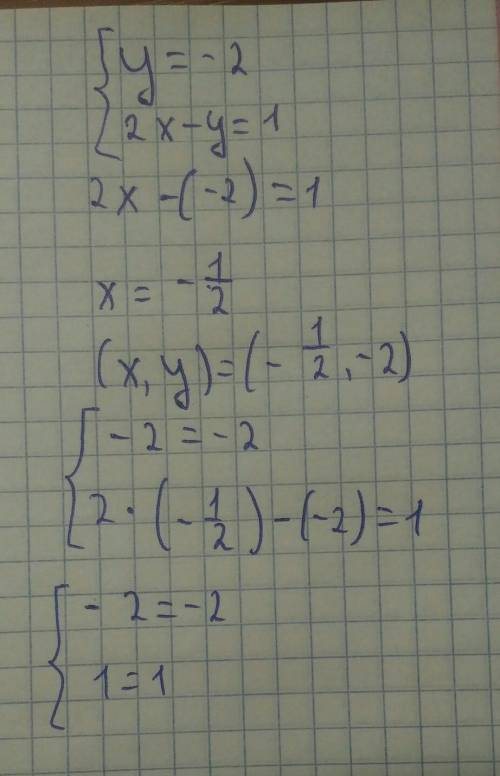 { y = -2
2x - y = 1
2x - (-2) = 1
x = - 1/2
(x, y) = (- 1/2, -2)
{ -2 = -2
2 · (- 1/2) - (-2) = 1
{ - 2 = -2
1 = 1